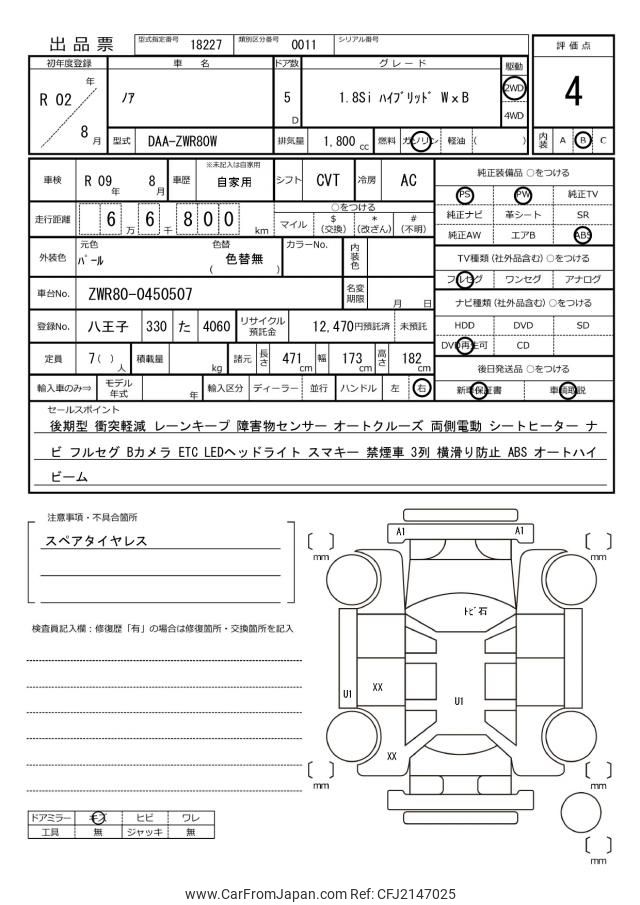 出品票
型式指定番号 18227 類別区分番号 0011 シリアル番号
評価点
4
内装 A B C
初年度登録 車 名 ドア数 グレード 駆動
R 02 年 8 月
ノア
5 D
1.8Si ハイブリッド WxB
2WD
4WD
型式 DAA-ZWR80W 排気量 1,800 cc 燃料 ガソリン 軽油 ( )
車検 R 09 年 8 月 車歴 ※未記入は自家用 自家用 シフト CVT 冷房 AC
走行距離 6 万 6 千 8 0 0 km
○をつける
マイル $ (交換) * (改ざん) # (不明)
外装色 元色 パール 色替 ( 色替無 ) カラーNo. 内装色
車台No. ZWR80-0450507 名変期限 月 日
登録No. 八王子 330 た 4060 リサイクル預託金 12,470円預託済 未預託
定員 7 ( ) 人 積載量 kg 諸元 長さ 471 cm 幅 173 cm 高さ 182 cm
輸入車のみ⇒ モデル年式 年 輸入区分 ディーラー 並行 ハンドル 左 右
純正装備品 ○をつける
PS PW 純正TV
純正ナビ 革シート SR
純正AW エアB ABS
TV種類 (社外品含む) ○をつける
フルセグ ワンセグ アナログ
ナビ種類 (社外品含む) ○をつける
HDD DVD SD
DVD再生可 CD
後日発送品 ○をつける
新車保証書 車輌取説
セールスポイント
後期型 衝突軽減 レーンキープ 障害物センサー オートクルーズ 両側電動 シートヒーター ナ
ビ フルセグ Bカメラ ETC LEDヘッドライト スマキー 禁煙車 3列 横滑り防止 ABS オートハイ
ビーム
注意事項・不具合箇所
スペアタイヤレス
検査員記入欄：修復歴「有」の場合は修復箇所・交換箇所を記入
A1 A1
[ ] mm [ ] mm
トビ石
U1 XX U1
XX
[ ] mm [ ] mm
[ ] mm
ドアミラー キズ ヒビ ワレ
工具 無 ジャッキ 無
www.CarFromJapan.com Ref: CFJ2147025